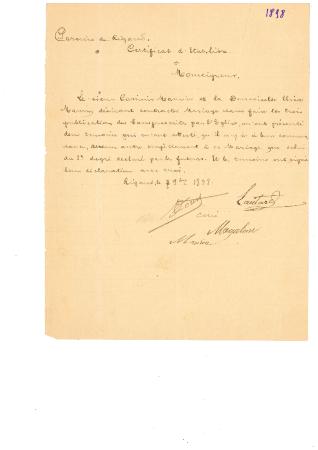 1898
Paroisse de Rigaud.
Certificat d'Etat libre
Monseigneur,
Le sieur Casimir Maurin et la Demoiselle
Maurin, désirant contracter Mariage sans faire les trois
publications de bans prescrits par l'Eglise, ont présenté
deux témoins qui ont attesté qu'il n'y a à leur connais
sance, aucun autre empêchement à ce Mariage que celui
du 3e degré déclaré par les futurs. Et les témoins ont signé
leur déclaration avec moi.
Rigaud, le 7 9bre 1898.
Lautard
curé
Magalon
Maurin